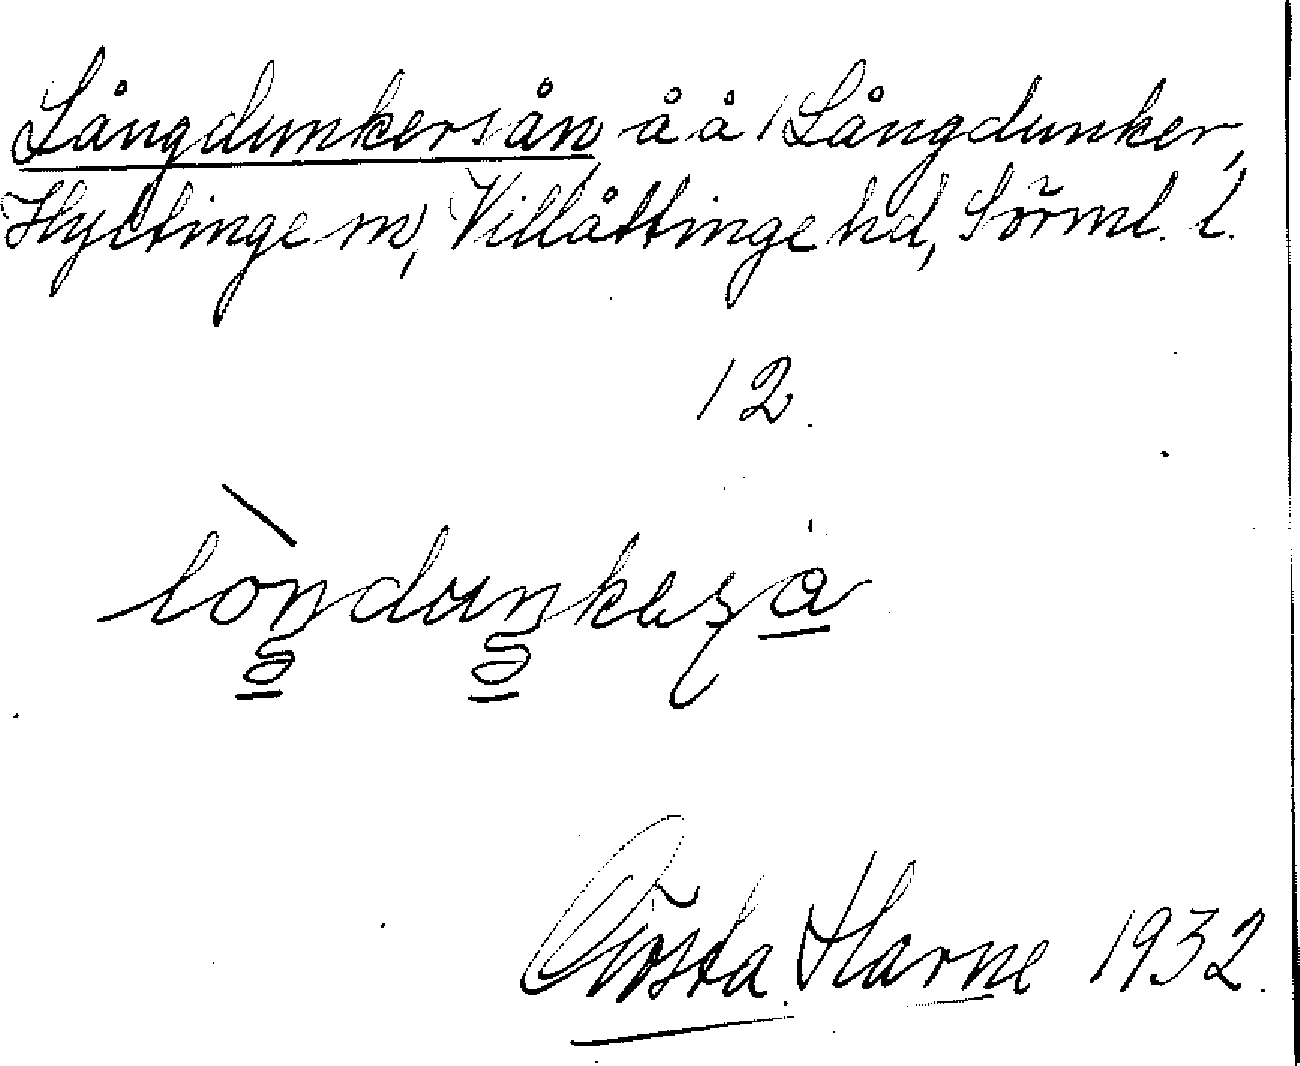 Långdunkersån å å Långdunker,
Hyltinge sn, Villåttinge hd, Sörml. l.
12.
Gösta Harne 1932.